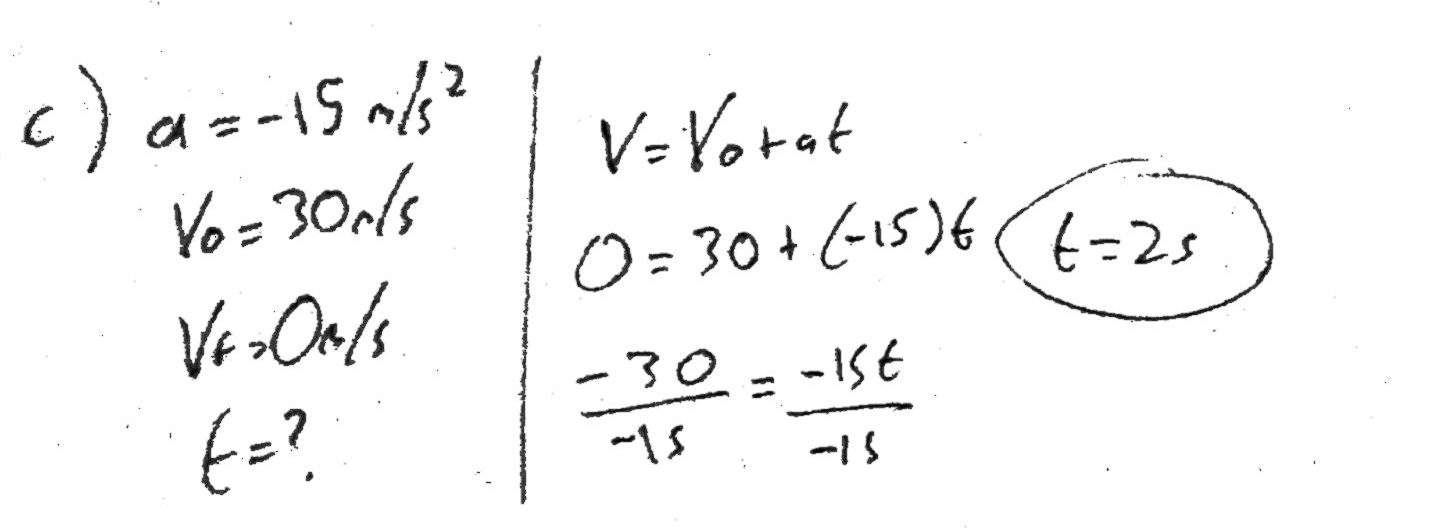 c) a = -15 m/s²
V₀ = 30 m/s
Vf = 0 m/s
t = ?
V = V₀ + at
0 = 30 + (-15)t
-30/-15 = -15t/-15
t = 2s